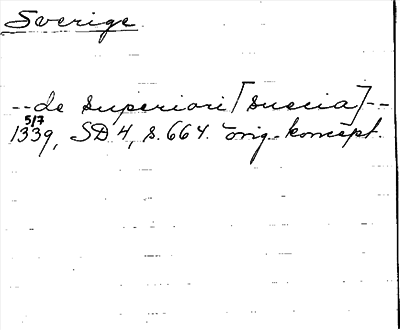 Sverige
--de superiori [suecia]--
5/7
1339, SD 4, s. 664. orig.-koncept.